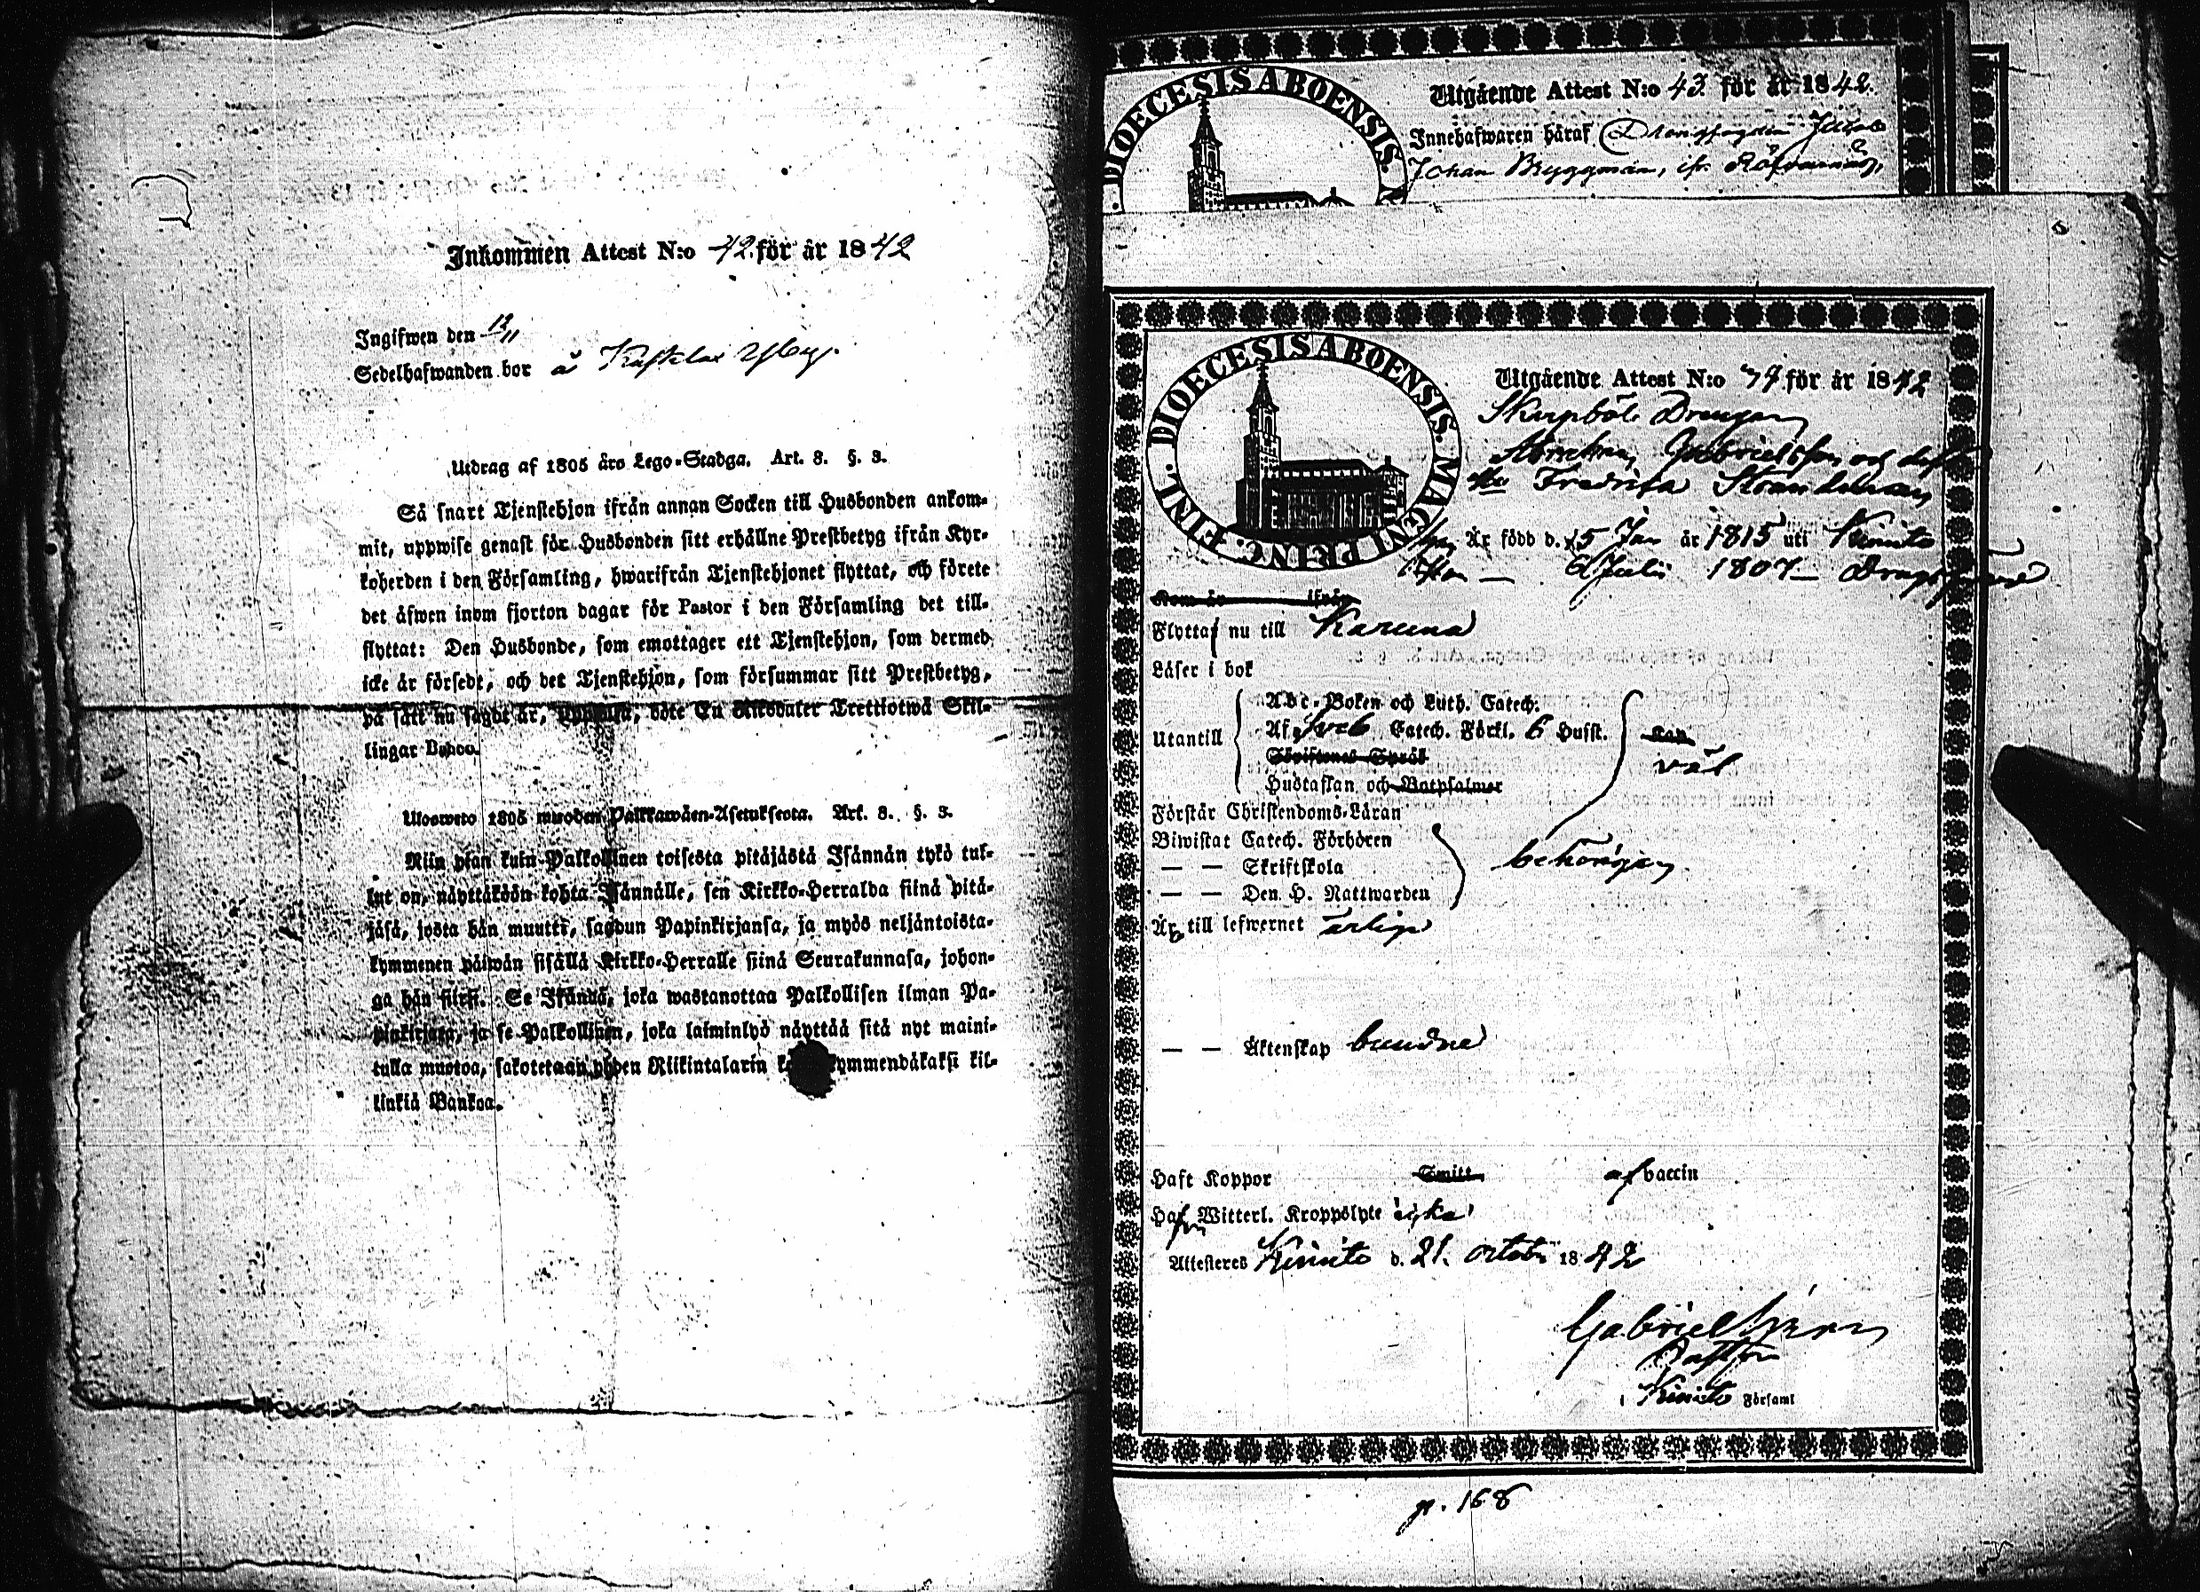 Inkommen Attest N:o 42 för år 1842
Ingifwen den 12/11
Sedelhafwanden bor å
Utdrag af 1805 års Lego-Stadga. Art. 8. §. 3.
Så snart Tjenstehjon ifrån annan Socken till Husbonden ankom-
mit, uppwise genast för Husbonden sitt erhållne Prestbetyg ifrån Kyr-
koherden i den Församling, hwarifrån Tjenstehjonet flyttat, och förete
det äfwen inom fjorton dagar för Pastor i den Församling det till-
flyttat: Den Husbonde, som emottager ett Tjenstehjon, som dermed
icke är försedt, och det Tjenstehjon, som försummar sitt Prestbetyg,
på sätt nu sagdt är, uppwisa, böte En Riksdaler Trettiotwå Skil-
lingar Banco.
Ulosweto 1805 wuoden Palkkawäen-Asetuksesta. Art. 8. §. 3.
Niin pian kuin Palkollinen toisesta pitäjästä Isännän tykö tul-
lut on, näyttäköön kohta Isännälle, sen Kirkko-Herralda siinä pitä-
jäsä, josta hän muutti, saadun Papinkirjansa, ja myös neljäntoista-
kymmenen päiwän sisällä Kirkko-Herralle siinä Seurakunnasa, johon-
ga hän siirsi. Se Isändä, joka wastanottaa Palkollisen ilman Pa-
pinkirjata, ja se Palkollinen, joka laiminlyö näyttää sitä nyt maini-
tulla muotoa, sakotetaan yhden Riikintalarin kymmendäkaksi kil-
linkiä Bankoa.
DIOECESIS ABOENSIS.
Utgående Attest N:o 43 för år 1842.
Innehafwaren häraf Jakob
Johan Bryggman, ifr.
DIOECESIS ABOENSIS. MAGNI PRINC. FINL.
Utgående Attest N:o 74 för år 1842
Skarpböle Drengen
Abraham Gabrielsson och dess
Hu Fredrika
Är född d. 15 Jan år 1815 uti Kimito
6 Julii 1807 —
Kom år ifrån
Flyttar nu till Karuna
Läser i bok
Utantill
Abc-Boken och Luth. Catech.
Af Sveb Catech. Förkl. 6 Hufst.
Skriftenes Språk
Hustaflan och Botpsalmer
Kan
väl
Förstår Christendoms-Läran
Biwistat Catech. Förhören
— — Skriftskola
— — Den H. Nattwarden
behörigen
Är till lefwernet ärlige
— — Äktenskap bundne
Haft Koppor Smitt af vaccin
Haf Witterl. Kroppslyte icke
Attesteras Kimito d. 21. october 1842
Gabriel
Pastor
i Kimito Församl
p. 168